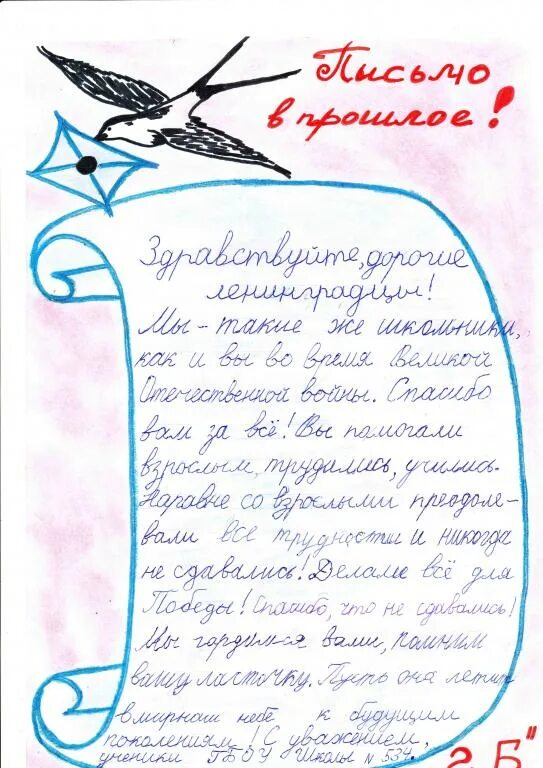 Письмо
в прошлое!
Здравствуйте, дорогие
ленинградцы!
Мы - такие же школьники,
как и вы во время Великой
Отечественной войны. Спасибо
вам за всё! Вы помогали
взрослым, трудились, учились.
Наравне со взрослыми преодоле-
вали все трудности и никогда
не сдавались! Делали всё для
Победы! Спасибо, что не сдавались!
Мы гордимся вами, помним
вашу ласточку. Пусть она летит
в мирном небе к будущим
поколениям! С уважением,
ученики ГБОУ Школы № 534.
2 "Б"